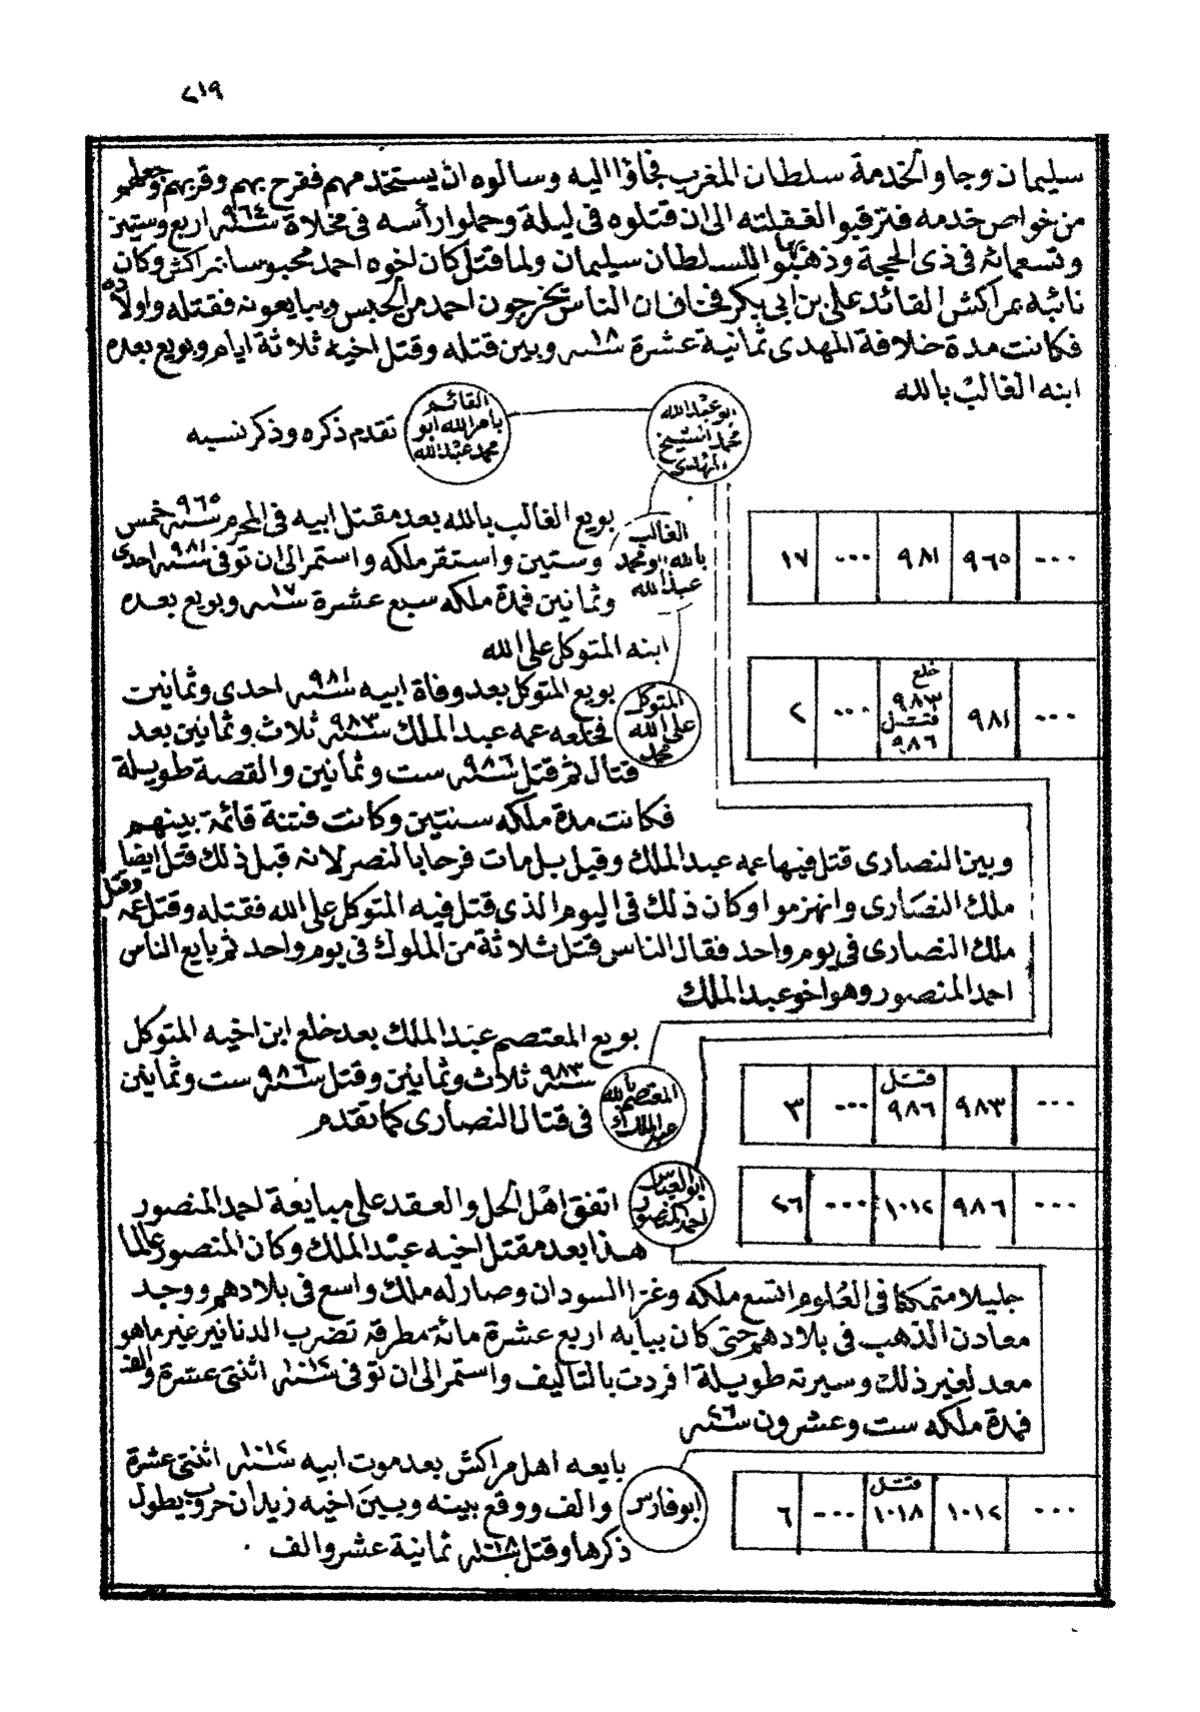 ٢١٩
سليمان وجاوا لخدمة سلطان المغرب فجاؤا اليه وسالوه ان يستخدمهم ففرح بهم وقربهم وجعلهم
من خواص خدمه فترقبوا الغفلته الى ان قتلوه فى ليلة وحملوا رأسه فى مخلاة سنة ٩٦٤ اربع وستين
وتسعمائة فى ذى الحجة وذهبوا بها للسلطان سليمان ولما قتل كان اخوه احمد محبوسا بمراكش وكان
نائبه بمراكش القائد على بن ابى بكر فخاف ان الناس يخرجون احمد من الحبس ويبايعونه فقتله واولاده
فكانت مدة خلافة المهدى ثمانية عشرة ١٨ سنه وبين قتله وقتل اخيه ثلاثة ايام وبويع بعده
ابنه الغالب بالله
ابو عبد الله محمد الشيخ المهدى
القائم بامر الله ابو محمد عبد الله
تقدم ذكره وذكر نسبه
الغالب بالله ابو محمد عبد الله
بويع الغالب بالله بعد مقتل ابيه فى المحرم سنة ٩٦٥ خمس
وستين واستقر ملكه واستمر الى ان توفى سنة ٩٨١ احدى
وثمانين فمدة ملكه سبع عشرة ١٧ سنه وبويع بعده
ابنه المتوكل على الله
--- ٩٦٥ ٩٨١ --- ١٧
المتوكل على الله محمد
بويع المتوكل بعد وفاة ابيه سنة ٩٨١ احدى وثمانين
فخلعه عمه عبد الملك سنة ٩٨٣ ثلاث وثمانين بعد
قتال ثم قتل سنة ٩٨٦ ست وثمانين والقصة طويلة
فكانت مدة ملكه سنتين وكانت فتنة قائمة بينهم
--- ٩٨١ خلع ٩٨٣ قتل ٩٨٦ --- ٢
وبين النصارى قتل فيها عمه عبد الملك وقيل بل مات فرحا بالنصر لانه قبل ذلك قتل ايضا
ملك النصارى وانهزموا وكان ذلك فى اليوم الذى قتل فيه المتوكل على الله فقتله وقتل عمه وقتل
ملك النصارى فى يوم واحد فقال الناس قتل ثلاثة من الملوك فى يوم واحد ثم بايع الناس
احمد المنصور وهو اخو عبد الملك
المعتصم بالله عبد الملك
بويع المعتصم عبد الملك بعد خلع ابن اخيه المتوكل
سنة ٩٨٣ ثلاث وثمانين وقتل سنة ٩٨٦ ست وثمانين
فى قتال النصارى كما تقدم
--- ٩٨٣ قتل ٩٨٦ --- ٣
ابو العباس احمد المنصور
اتفق اهل الحل والعقد على مبايعة احمد المنصور
هذا بعد مقتل اخيه عبد الملك وكان المنصور عالما
--- ٩٨٦ ١٠١٢ --- ٢٦
جليلا متمكنا فى العلوم اتسع ملكه وغزا السودان وصار له ملك واسع فى بلادهم ووجد
معادن الذهب فى بلادهم حتى كان ببابه اربع عشرة مائة مطرقة تضرب الدنانير غير ما هو
معد لغير ذلك وسيرته طويلة افردت بالتاليف واستمر الى ان توفى سنة ١٠١٢ اثنتى عشرة والف
فمدة ملكه ست وعشرون ٢٦ سنه
ابو فارس
بايعه اهل مراكش بعد موت ابيه سنة ١٠١٢ اثنتى عشرة
والف ووقع بينه وبين اخيه زيدان حروب يطول
ذكرها وقتل سنة ١٠١٨ ثمانية عشر والف .
--- ١٠١٢ قتل ١٠١٨ --- ٦